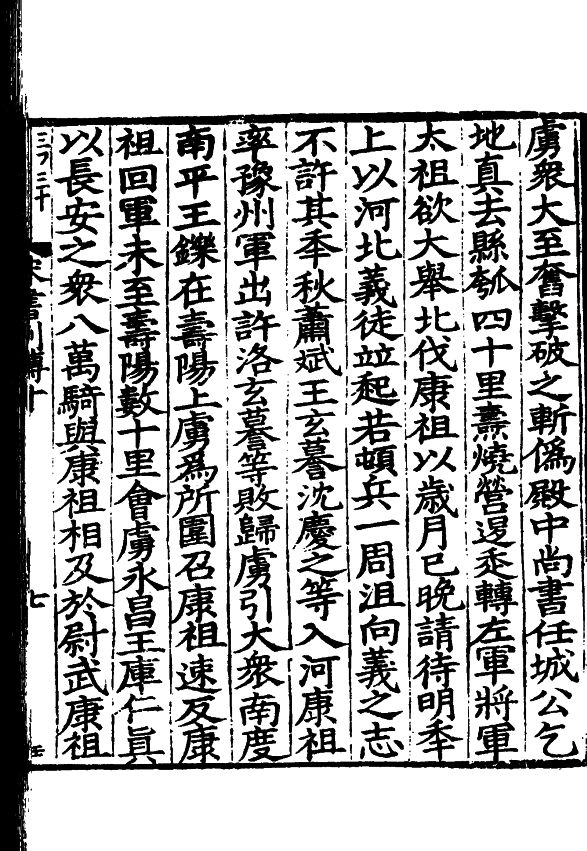 虜衆大至奮擊破之斬偽殿中尚書任城公乞
地真去縣瓠四十里燾燒營退走轉左軍將軍
太祖欲大舉北伐康祖以歲月已晚請待明年
上以河北義徒並起若頓兵一周沮向義之志
不許其年秋蕭斌王玄謩沈慶之等入河康祖
率豫州軍出許洛玄謩等敗歸虜引大衆南度
南平王鑠在壽陽上慮爲所圍召康祖速反康
祖回軍未至壽陽數十里會虜永昌王庫仁真
以長安之衆八萬騎與康祖相及於尉武康祖
宋書列傳十
七